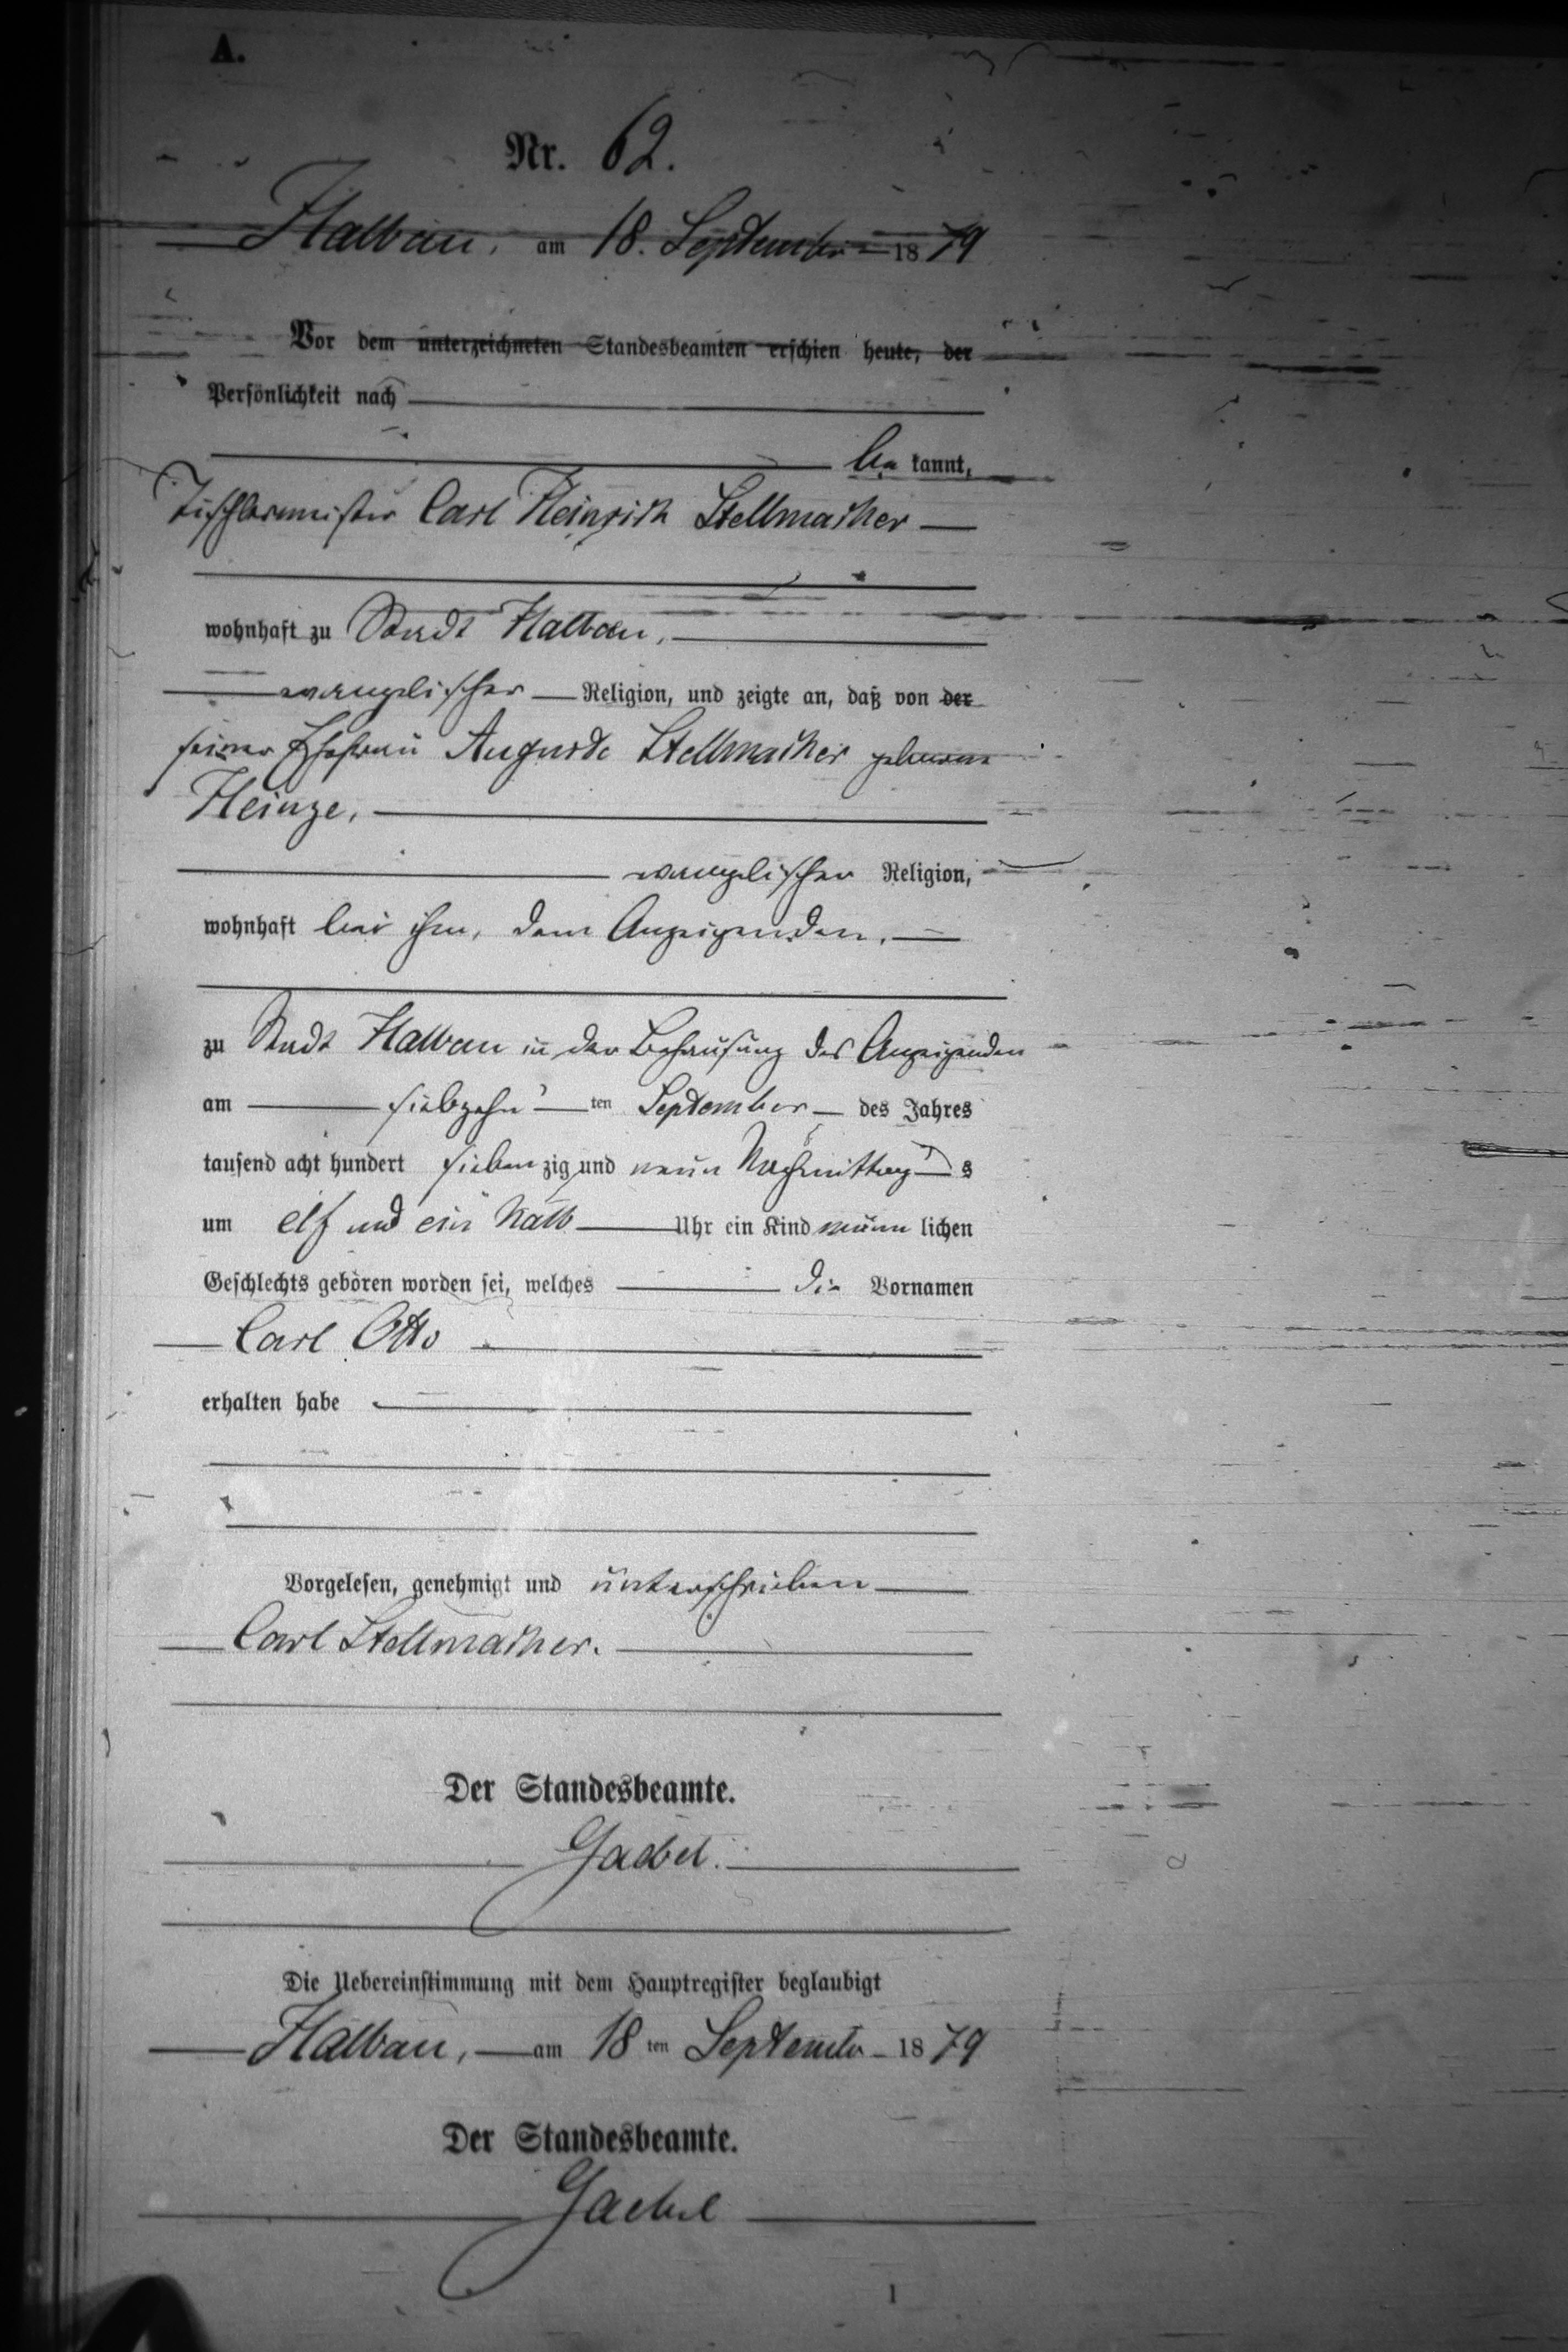 A.
Nr. 62.
Halbau, am 18. September 1879
Vor dem unterzeichneten Standesbeamten erschien heute, der
Persönlichkeit nach
be kannt,
Tischlermeister Carl Heinrich Stellmacher
wohnhaft zu Stadt Halbau,
evangelischer Religion, und zeigte an, daß von der
seiner Ehefrau Auguste Stellmacher geborene
Heinze,
evangelischer Religion,
wohnhaft bei ihm, dem Anzeigenden,
zu Stadt Halbau in der Behausung des Anzeigenden
am siebzehn ten September des Jahres
tausend acht hundert sieben zig und neun Nachmittag s
um elf und ein halb Uhr ein Kind männ lichen
Geschlechts geboren worden sei, welches die Vornamen
Carl Otto
erhalten habe
Vorgelesen, genehmigt und unterschrieben
Carl Stellmacher.
Der Standesbeamte.
Gaebel.
Die Uebereinstimmung mit dem Hauptregister beglaubigt
Halbau, am 18 ten September 1879
Der Standesbeamte.
Gaebel